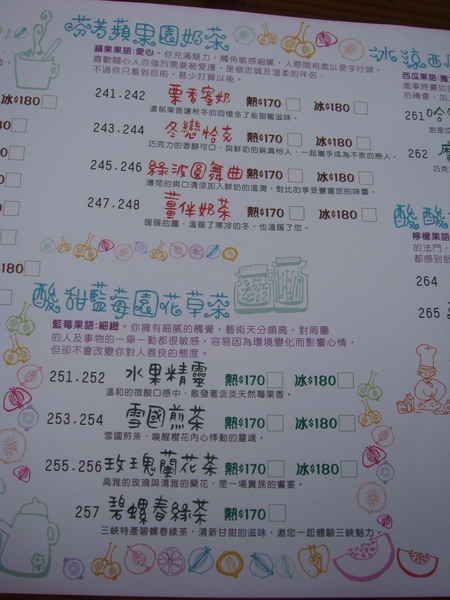 芬芳蘋果園奶茶
蘋果果語:愛心。你充滿魅力，觸角敏感細膩，人際間相處以愛字行頭。
喜歡關心人亦強烈需要被愛護，是個忠誠及溫柔的伴侶，
不過你只看到目前，甚少打算以後。
241.242 栗香蜜奶 熱$170 冰$180
濃郁栗香讓秋冬的回憶多了些甜蜜滋味。
243.244 冬戀恰克 熱$170 冰$180
巧克力的香醇可口，與鮮奶的純真怡人，一起攜手成為不敗的戀人。
245.246 綠波圓舞曲 熱$170 冰$180
薄荷的爽口清涼加入鮮奶的溫潤，對比的享受豐富您的味蕾。
247.248 薑伴奶茶 熱$170 冰$180
暖暖的薑，溫暖了寒冷的冬，也溫暖了您。
酸甜藍莓園花草茶
藍莓果語:細緻。你擁有細膩的觸覺，藝術天分頗高，對周圍
的人及事物的一舉一動都很敏感，容易因為環境變化而影響心情，
但卻不會改變你對人善良的態度。
251.252 水果精靈 熱$170 冰$180
溫和的微酸口感中，散發著淡淡天然莓果香。
253.254 雪國煎茶 熱$170 冰$180
雪國煎茶，喚醒櫻花內心悸動的靈魂。
255.256 玫瑰蘭花茶 熱$170 冰$180
高雅的玫瑰與清雅的蘭花，是一場貴族的饗宴。
257 碧螺春綠茶 熱$170
三峽特產碧螺春綠茶，清新甘甜的滋味，邀您一起體驗三峽魅力。
冰$180
$180
冰涼西
西瓜果語:
處事時
的機會，加
261 哈
哈密瓜
262
巧克
酸酸
檸檬果語:
的法門，
都感到舒
264
265